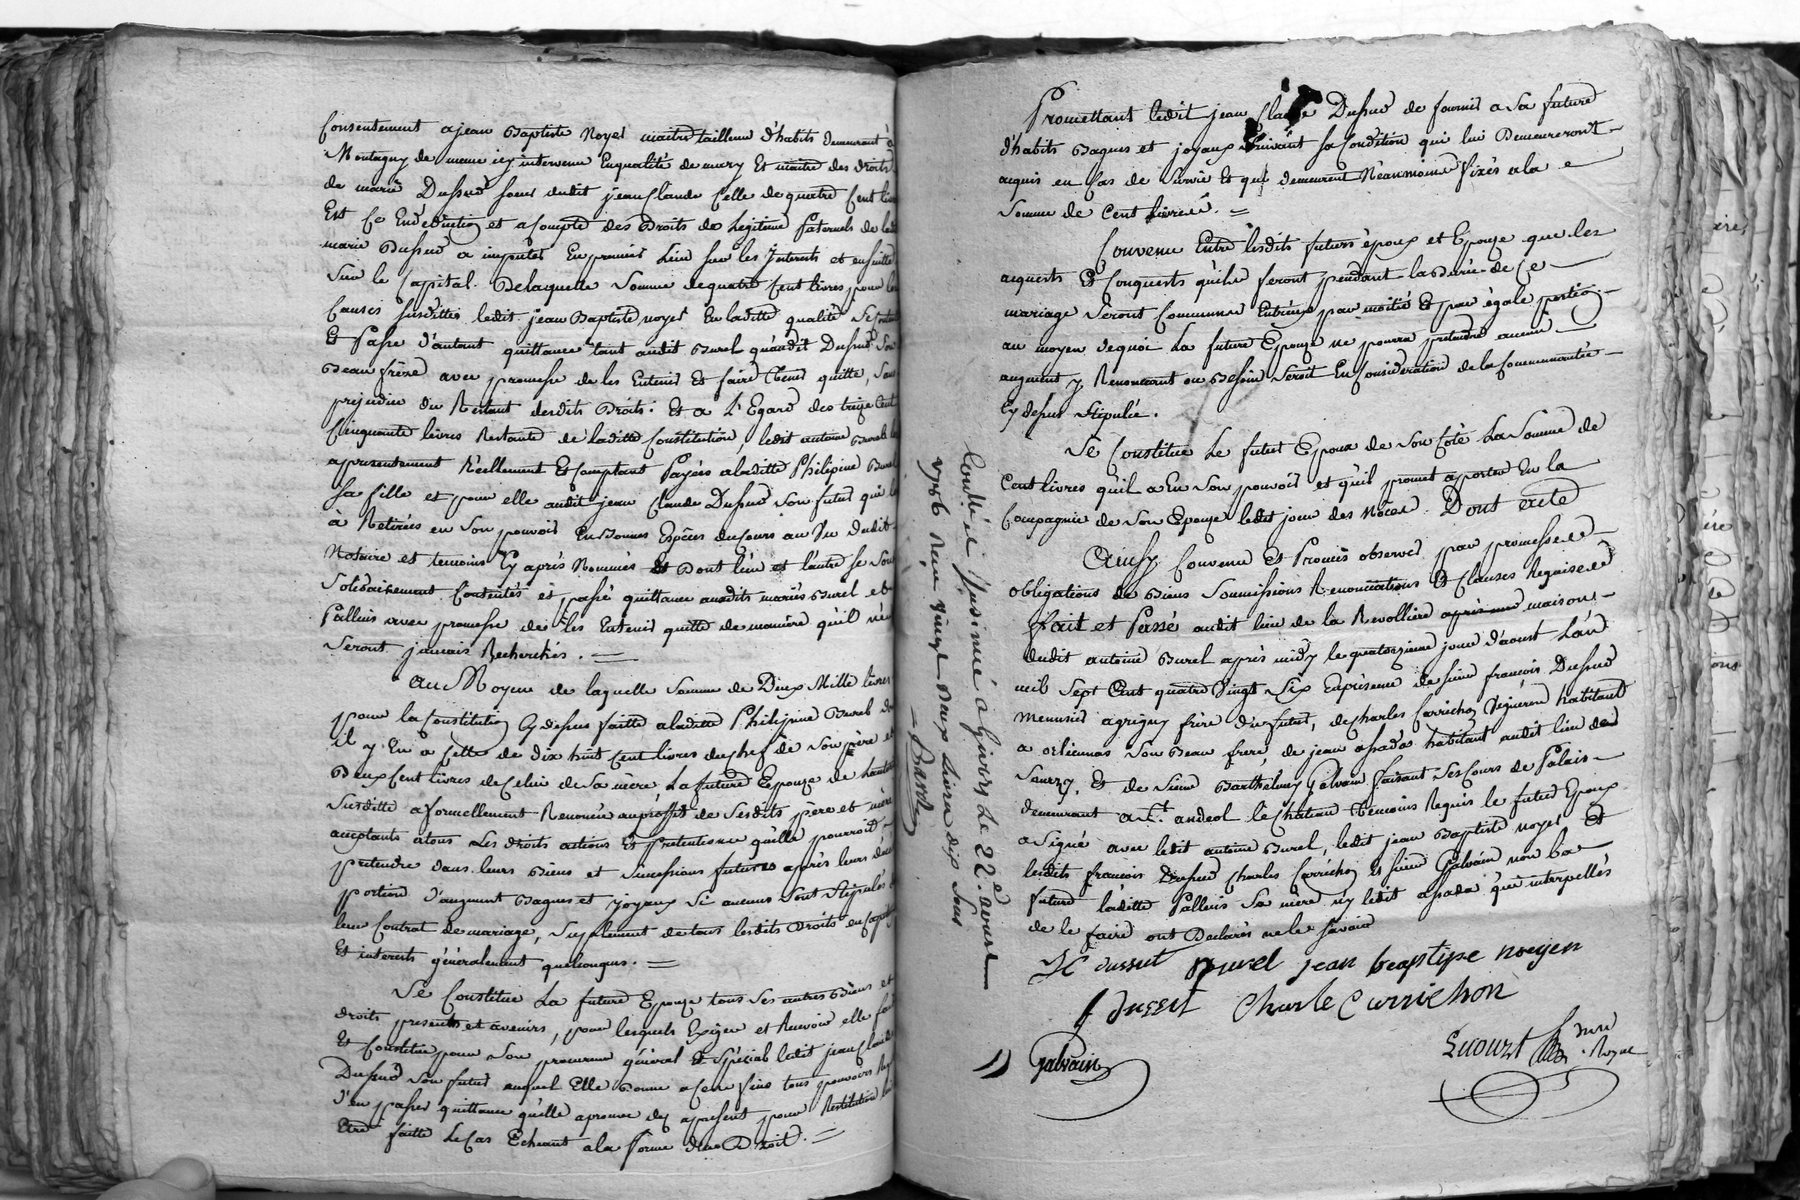 Consentement a jean Baptiste Noyer maitre tailleur d'habits demeurant à
Montagny de meme icy intervenu En qualité de mary Et maitre des droits
de marie Dussud soeur dudit jean Claude Celle de quatre Cent livres
Est Ce En déduction et acompte des Droits de Legitime Paternels de ladite
marie Dussud a imputer En premier Lieu sur les Interets et ensuitte
Sur le Capital. De laquelle Somme de quatre Cent livres pour les
Causes susdittes ledit jean Baptiste noyer En laditte qualité Se contente
Et Passe d'autant quittance tant audit Burel qu'audit Dussud Son
Beau frère avec promesse de les Entenir Et faire tenir quitte, Sans
prejudice du Restant desdits Droits. Et a L'Egard des treize Cent
Cinquante livres Restante de laditte Constitution, ledit antoine Burel les a
apresentement Réellement Et Comptant Payées a laditte Philipine Burel
sa fille et pour elle audit jean Claude Dussud Son futur qui les
à Retirées en Son pouvoir En Bonnes Espèces du Cours au Vu dudit
Notaire et temoins Cy après Nommés Et Dont l'un et l'autre se Sont
Solidairement Contentés et passé quittance auxdits mariés Burel et
Palluis avec promesse de les Entenir quitte de manière qu'il n'en
Seront jamais Recherchés.
Au Moyen de laquelle Somme de Deux Mille livres
pour la Constitution Cy dessus faitte a laditte Philipine Burel dont
il y En a Celle de dix huit Cent livres du chef de Son père et
Deux Cent livres de Celui de Sa mère La future Epouze de l'autorité
Susditte a formellement Renoncée au proffit de Sesdits père et mère
acceptants a tous Les droits actions Et pretentions qu'elle pourroit
pretendre dans leurs Biens et Successions futures après leurs deces
portion d'augment Bagues et joyaux Si aucuns Sont Stipulés en
leur Contrat de mariage, Suplement de tous lesdits Droits en Capital
Et interets généralement quelconques.
Se Constitue La future Epouze tous Ses autres Biens et
droits presents et avenirs, pour lesquels Exiger et Recevoir elle fait
Et Constitue pour Son procureur général Et Spécial ledit jean Claude
Dussud Son futur auquel Elle Donne a Cette fins tous pouvoirs
d'en passer quittance qu'elle aprouve dez apresent pour Restitution En
Etre faitte le Cas Echeant a la forme du Droit.
Promettant ledit jean Claude Dussud de fournir a Sa future
d'habits Bagues et joyaux Suivant sa Condition qui lui Demeureront
acquis en Cas de Survie Et qui demeurent Néanmoins fixés a la
Somme de Cent livres.
Convenu Entre lesdits futurs époux et Epouze que les
acquets Et Conquets qu'ils feront pendant la Durée de Ce
mariage Seront Communs Entr'eux par moitié Et par égale portion
au moyen de quoi La future Epouze ne pourra pretendre aucun
augment y Renoncant ou Besoin Seroit En Considération de la Communauté
Cy dessus Stipulée.
Se Constitue Le futur Epoux de Son Coté La Somme de
Cent livres qu'il a En Son pouvoir et qu'il promet aporter En la
Compagnie de Son Epouze ledit jour des Noces. Dont acte
Ainsy Convenu et Promis observer par promesses
obligations de Biens Soumissions Renonciations Et Clauses Requises
fait et Passé audit lieu de la Revollière maison
dudit antoine Burel après midy le quatorzieme jour d'aoust L'an
mil Sept Cent quatre Vingt Six En présence de sieur francois Dussud
Menusier a grigny frère du futur, de charles Carrichon Vigneron habitant
a orlienas Son Beau frere, de jean apada habitant audit lieu de
Sourzy, Et de Sieur Barthelmy Galvain faisant Ses Cours de Palais
demeurant a St. andeol le Château temoins Requis le futur Epoux
a Signé avec ledit antoine Burel, ledit jean Baptiste noyer Et
lesdits francois Dussud Charles Carrichon Et sieur Galvain non la
future laditte Palluis Sa mère ny ledit apada qui interpellés
de le faire ont Declarés ne le Savoir
JC dussut Burel jean baptiste noyer
f dussut Charle Carrichon
Galvain
Royal
Contllé et Insinué a Givors Le 22e. aoust
1786 Reçu Vingt Deux Livres dix Sous